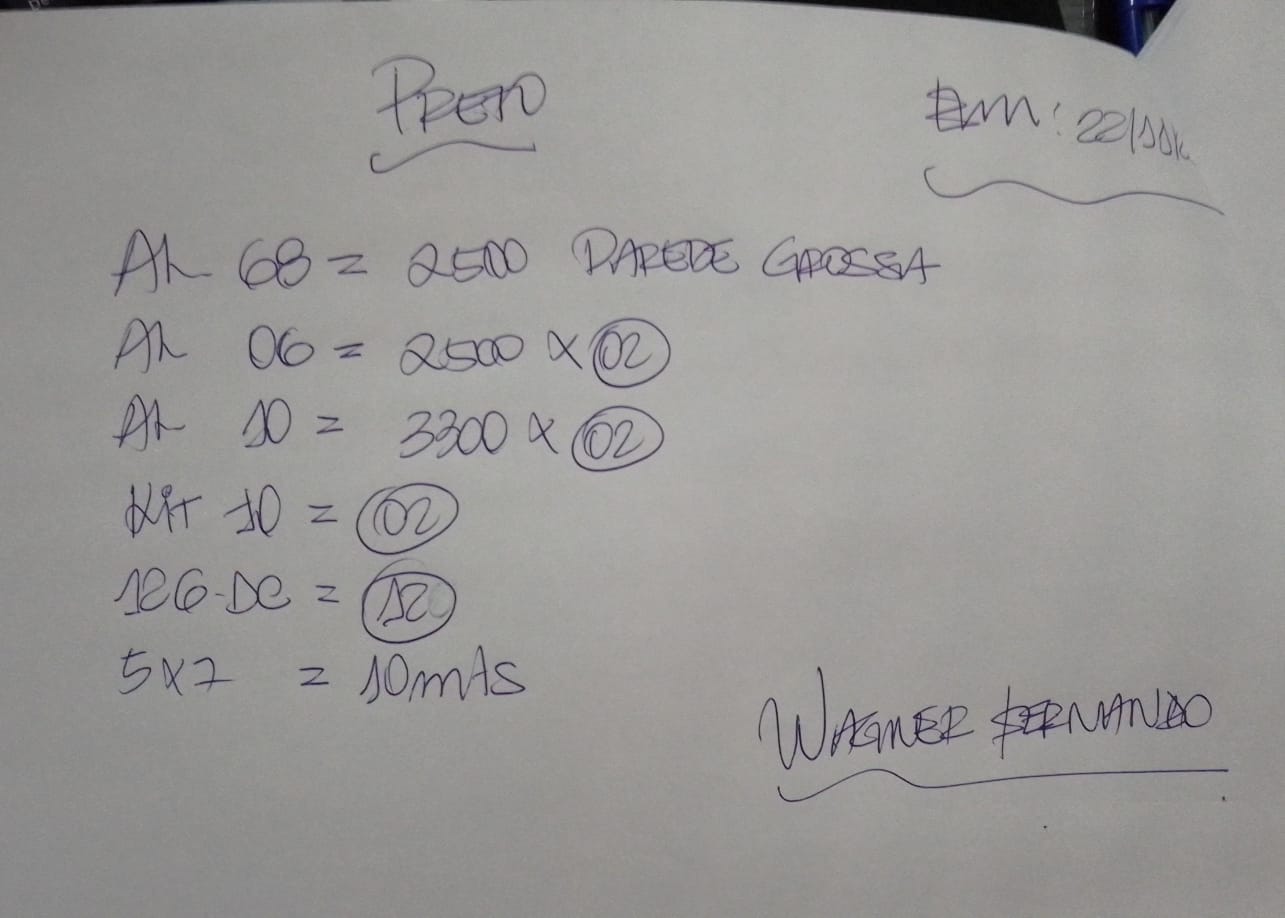 PRETO
EM: 22/11
AL 68 = 2500 PAREDE GROSSA
AL 06 = 2500 x 02
AL 10 = 3300 x 02
KiT 10 = 02
126-DC = 12
5x7 = 10mts
WAGNER FERNANDO